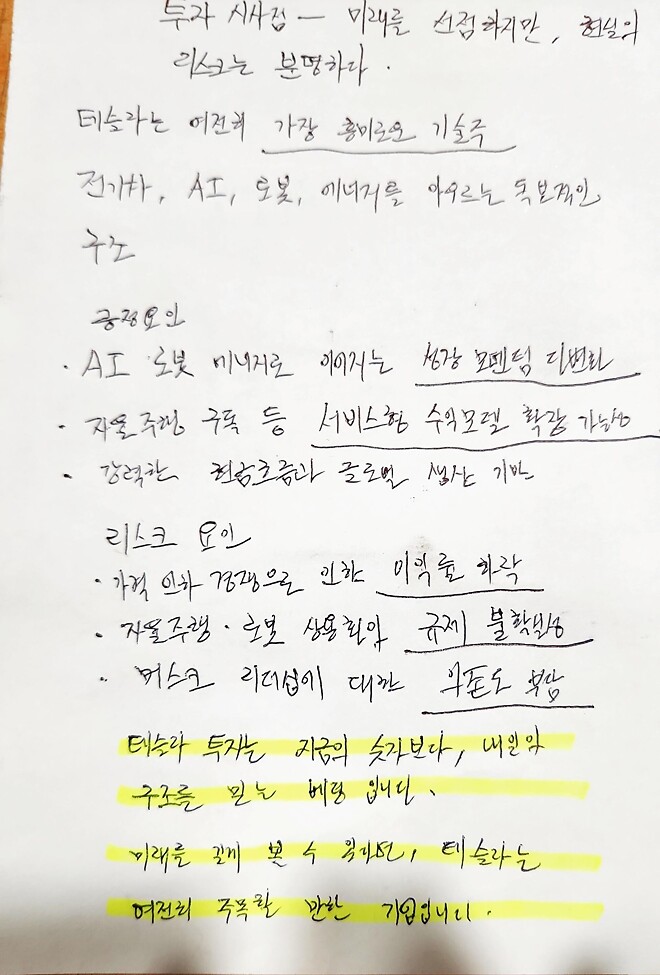 투자 시사점 — 미래를 선점하지만, 현실의
리스크는 분명하다.
테슬라는 여전히 가장 흥미로운 기술주
전기차, AI, 로봇, 에너지를 아우르는 독보적인
구조
긍정요인
· AI 로봇 에너지로 이어지는 성장 모멘텀 다변화
· 자율주행 구독 등 서비스형 수익모델 확장 가능성
· 강력한 현금흐름과 글로벌 생산 기반
리스크 요인
· 가격 인하 경쟁으로 인한 이익률 하락
· 자율주행 · 로봇 상용화의 규제 불확실성
· 머스크 리더십에 대한 의존도 부담
테슬라 투자는 지금의 숫자보다, 내일의
구조를 믿는 베팅 입니다.
미래를 길게 볼 수 있다면, 테슬라는
여전히 주목할 만한 기업입니다.